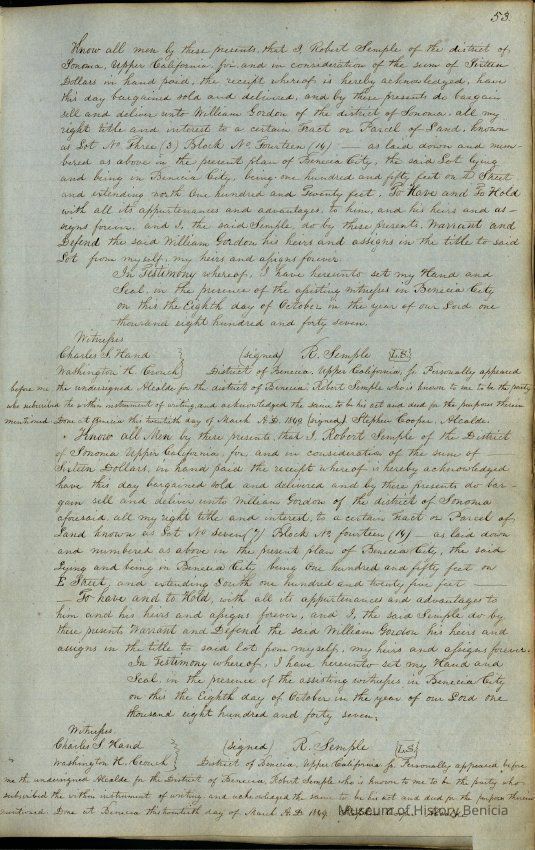 53.
Know all men by these presents, that I, Robert Semple of the district of
Sonoma, Upper California, for, and in consideration of the sum of Sixteen
Dollars in hand paid, the receipt whereof is hereby acknowledged, have
this day bargained sold and delivered, and by these presents do bargain
sell and deliver unto William Gordon of the district of Sonoma all my
right title and interest to a certain Tract or Parcel of Land, known
as Lot No Three (3) Block No. Fourteen (14) — as laid down and num-
bered as above in the present plan of Benecia City, the said Lot lying
and being in Benecia City, being one hundred and fifty feet on D Street
and extending north One hundred and Twenty feet, To Have and To Hold
with all its appurtenances and advantages, to him, and his heirs and as-
signs forever, and I, the said Semple, do by these presents, Warrant and
Defend the said William Gordon his heirs and assigns in the title to said
Lot from myself, my heirs and assigns forever.
In Testimony whereof, I have hereunto set my Hand and
Seal, in the presence of the witnesses in Benecia City
on this the Eighth day of October in the year of our Lord one
thousand eight hundred and forty seven.
Witnesses
Charles S. Hand } (signed) R. Semple [L.S.]
Washington H. Crouch } District of Benecia, Upper California, Personally appeared
before me the undersigned Alcalde for the district of Benecia Robert Semple who is known to me to be the party
who subscribed the within instrument of writing, and acknowledged the same to be his act and deed for the purposes therein
mentioned. Done at Benecia this twentieth day of March A.D. 1849 (signed) Stephen Cooper, Alcalde.
Know all Men by these presents, that I, Robert Semple of the District
of Sonoma Upper California, for, and in consideration of the sum of —
Sixteen Dollars, in hand paid the receipt whereof is hereby acknowledged
have this day bargained sold and delivered and by these presents do bar-
gain sell and deliver unto William Gordon of the district of Sonoma
aforesaid, all my right title and interest, to a certain tract or Parcel of
Land known as Lot No Seven (7) Block No. fourteen (14) — as laid down
and numbered as above in the present plan of Benecia City, the said
Lying and being in Benecia City being One hundred and fifty feet on
E Street, and extending South one hundred and twenty five feet —
— To have and to Hold, with all its appurtenances and advantages to
him and his heirs and assigns forever, and I, the said Semple do by
these presents, Warrant and Defend the said William Gordon his heirs and
assigns in the title to said lot from myself, my heirs and assigns forever.
In Testimony whereof, I have hereunto set my Hand and
Seal, in the presence of the witnesses in Benecia City
on this the Eighth day of October in the year of our Lord one
thousand eight hundred and forty seven.
Witnesses
Charles S. Hand } (signed) R. Semple [L.S.]
Washington H. Crouch } District of Benecia, Upper California Personally appeared before
me the undersigned Alcalde for the District of Benecia, Robert Semple who is known to me to be the party who
subscribed the within instrument of writing, and acknowledged the same to be his act and deed for the purposes therein
mentioned. Done at Benecia this twentieth day of March A.D. 1849.
Museum of History Benicia